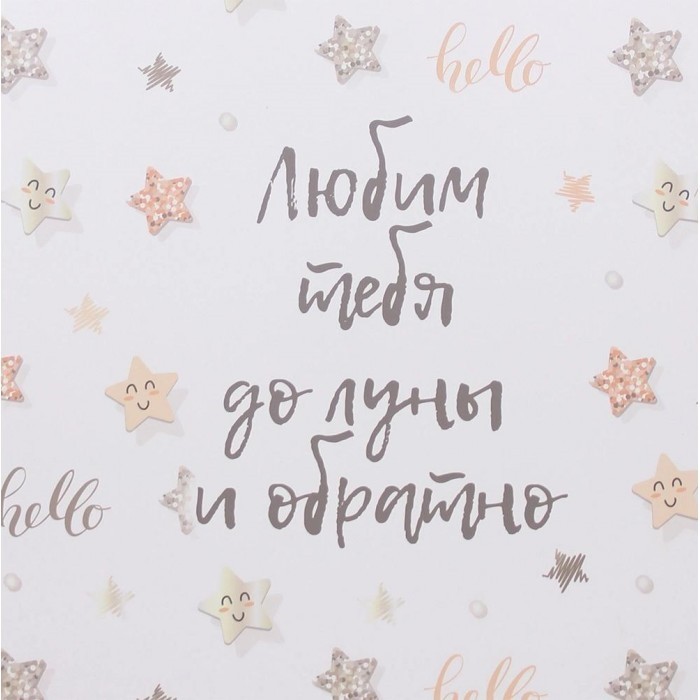 hello
Любим
тебя
до луны
и обратно
hello
hello